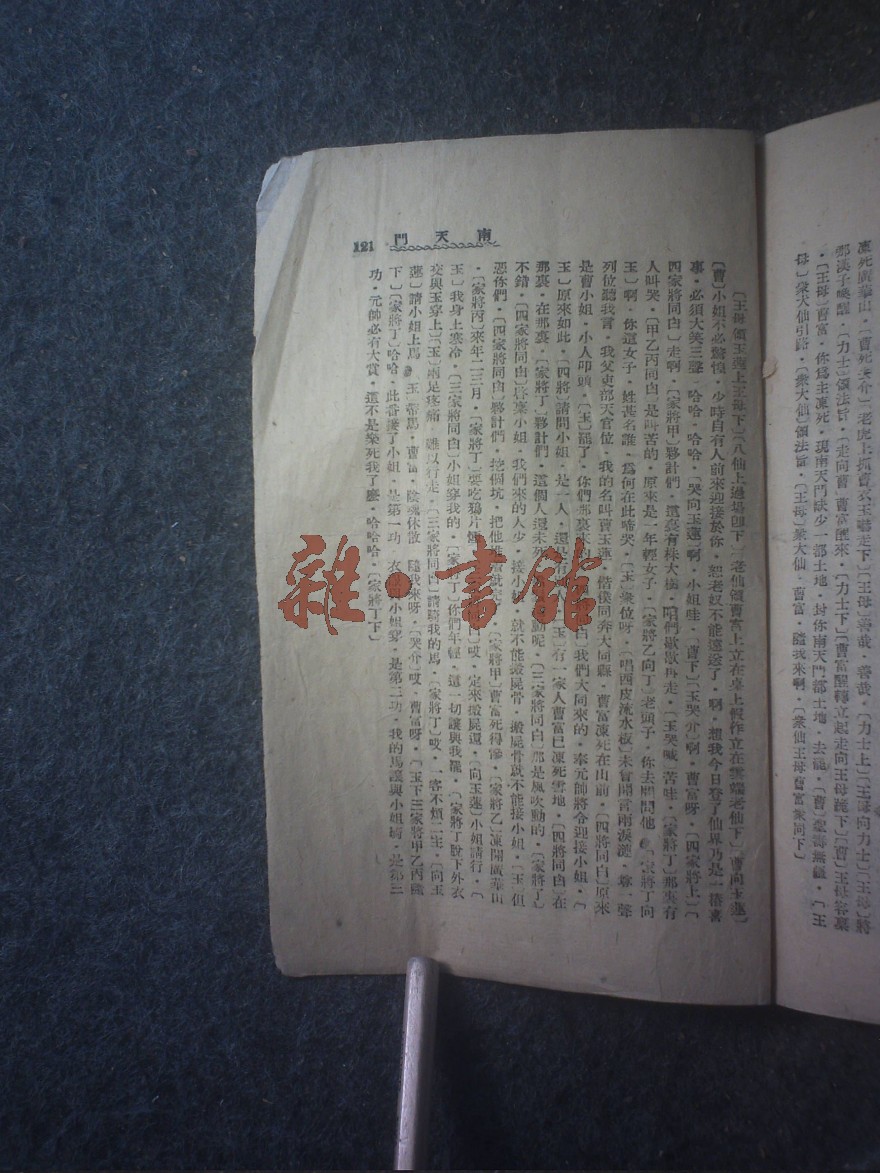 凍死廣華山・〔曹死哭介〕老虎上抓曹衣玉蓮下〕〔王母〕善哉・善哉・〔力士上〕〔王母向力士〕將
那漢子喚醒・〔力士〕領法旨・〔走向曹〕曹富醒來・〔力士下〕〔曹富醒轉立起走向王母跪下〕〔曹〕王母容稟
・〔王母〕曹富・你爲主凍死・現南天門缺少一部土地・封你南天門都土地・去罷・〔曹〕聖壽無疆・〔王
母〕衆大仙引路・〔衆大仙〕領法旨・〔王母〕衆大仙・曹富・隨我來啊・〔衆仙王母曹富衆同下〕
南天門
121
〔王母領玉蓮上王母下〕〔八仙上過場卽下〕〔老仙領曹富上立在桌上假作立在雲端老仙下〕〔曹向玉蓮〕
〔曹〕小姐不必驚慌・少時自有人前來迎接於你・恕老奴不能遠送了・啊・想我今日登了仙界乃是一樁喜
事・必須大笑三聲・哈哈・哈哈・〔哭向玉蓮〕啊・小姐哇・〔曹下〕〔玉哭介〕啊・曹富呀・〔四家將上〕〔
四家將同白〕走啊・〔家將甲〕夥計們・這裏有株大樹・咱們歇歇再走・〔玉哭喊〕苦哇・〔家將丁〕那裏有
人叫哭・〔甲乙丙同白〕是叫苦的・原來是一年輕女子・〔家將乙向丁〕老頭子・你去問問他・〔家將丁向
玉〕啊・你這女子・姓甚名誰・爲何在此啼哭・〔玉〕衆位呀・〔唱西皮流水板〕未曾開言兩淚漣・尊一聲
列位聽我言・我父吏部天官位・我的名叫曹玉蓮・偕僕同奔大同縣・曹富凍死在山前・〔四將同白〕原來
是曹小姐・小人叩頭・〔玉〕罷了・你們那裏
白〕我們大同來的・奉元帥將令迎接小姐・〔
玉〕原來如此・〔四將〕請問小姐・是一人・還是
〔玉〕有一家人曹富已凍死雪地・〔四將同白〕在
那裏・在那裏・〔家將丁〕夥計們・這個人還未死
動呢・〔三家將同白〕那是風吹動的・〔家將丁〕
不錯・〔四家將同白〕啓稟小姐・我們來的人少・接小姐
就不能搬屍骨・搬屍骨就不能接小姐・〔玉〕但
憑你們・〔四家將同白〕夥計們・挖個坑・把他
〔家將甲〕曹富死得慘・〔家將乙〕凍開廣華山
・〔家將丙〕來年二三月・〔家將丁〕要吃鴉片煙
白〕哎・定來搬屍還・〔向玉蓮〕小姐請行・〔
玉〕我身上寒冷・〔三家將同白〕小姐穿我的・〔家將丁〕你們年輕・這一切讓與我罷・〔家將丁脫下外衣
交與玉穿上〕〔玉〕兩足疼痛・難以行走・〔三家將同白〕請騎我的馬・〔家將丁〕哎・一客不煩二主・〔向玉
蓮〕請小姐上馬・〔玉〕帶馬・曹富・陰魂休散・隨我來呀・〔哭介〕哎・曹富呀・〔玉下三家將甲乙丙隨
下〕〔家將丁〕哈哈・此番接了小姐・是第一功・衣
小姐穿・是第二功・我的馬讓與小姐騎・是第三
功・元帥必有大賞・還不是樂死我了麼・哈哈哈・〔家將丁下〕
雜・書館